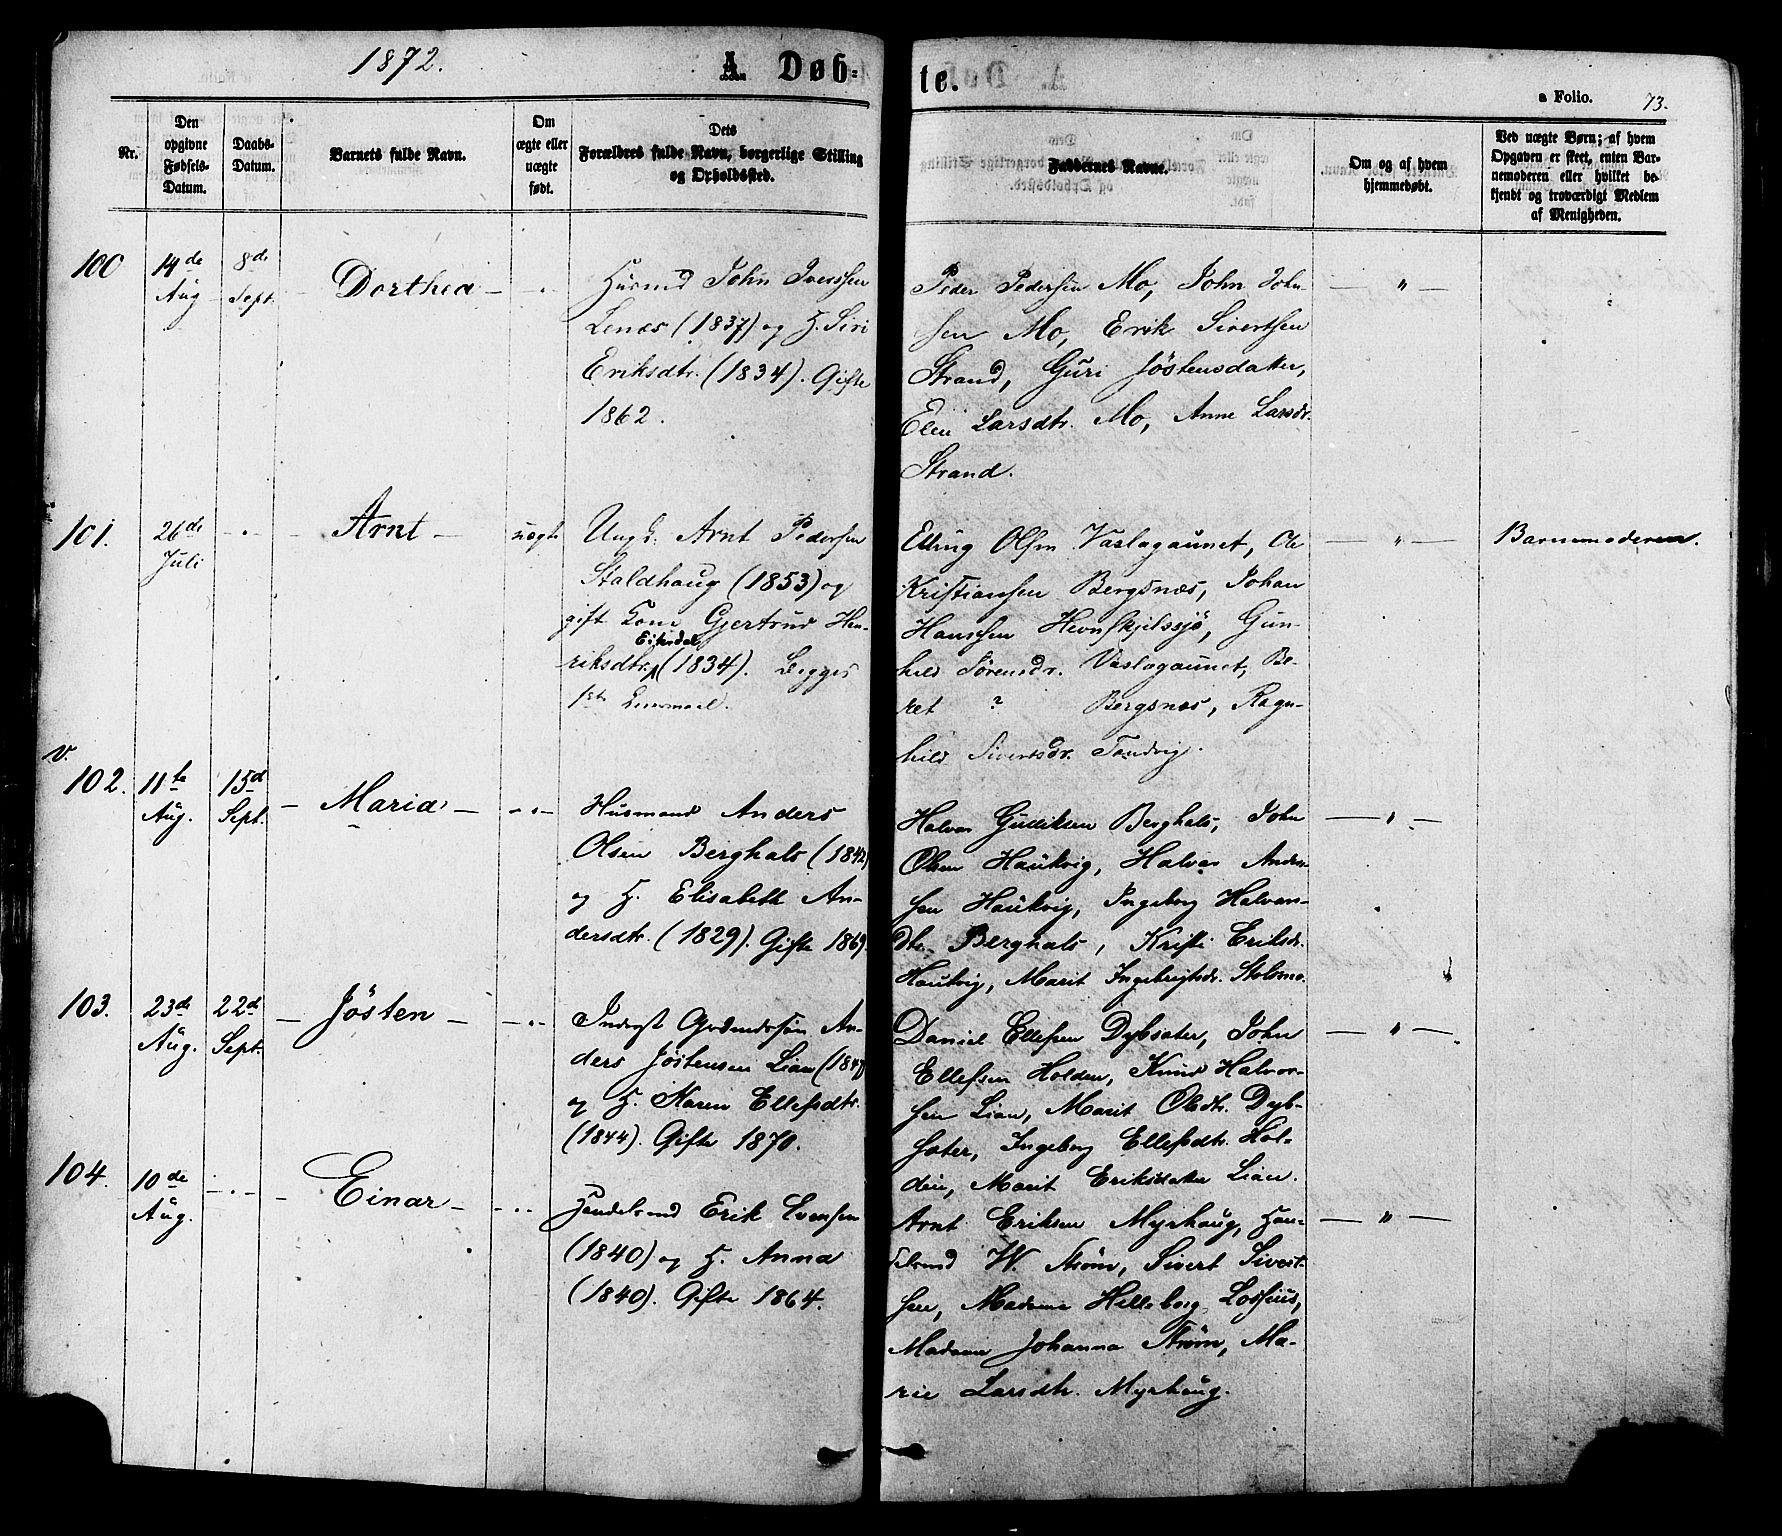 1872.
A. Døb=
te.
a Folio. 73.
Nr.
Den opgivne Fødsels-Datum.
Daabs-Datum.
Barnets fulde Navn.
Om ægte eller uægte født.
Dets Forældres fulde Navn, borgerlige Stilling og Opholdssted.
Faddernes Navne.
Om og af hvem hjemmedøbt.
Ved uægte Børn; af hvem Opgaven er skeet, enten Barnemoderen eller hvilket bekjendt og troværdigt Medlem af Menigheden.
100 14de Aug 8de Sept. Dorthea
Husmd John Iverssen
Lenæs (1837) og H. Siri
Eriksdtr. (1834). Gifte
1862.
Peder Pedersen Mo, John John-
sen Mo, Erik Sivertsen
Strand, Guri Jöstensdatter,
Elen Larsdtr. Mo, Anne Larsdr.
Strand.
101. 26de Juli Arnt uægte
Ungk. Arnt Pedersen
Staldhaug (1853) og
gift Kone Gjertrud Hen-
riksdtr. (1834). Begges
1ste Leiermaal.
Elling Olsen Vaslagaunet, Ole
Kristiansen Bergsnæs, Johan
Hanssen Hevnskjelssjö, Gun-
hild Sörensdr. Vaslagaunet, Be-
ret ? Bergsnæs, Ragn-
hild Sivertsdr. Tandvig.
Barnemoderen.
v.
102. 11te Aug. 15d Sept. Maria
Husmand Anders
Olsen Berghals (1842)
og H. Elisabeth An-
dersdtr. (1829). Gifte 1869.
Halvor Gulliksen Berghals, John
Olsen Haukvig, Halvor Ander-
sen Haukvig, Ingeborg Halvors-
dtr. Berghals, Kristi Eriksdr.
Haukvig, Marit Ingebrigtsdr. Stolsmo.
103. 23de Aug. 22d Sept. Jösten
Inderst Anders Jöstensen Lian (1847)
og H. Karen Ellefsdtr.
(1844). Gifte 1870.
Daniel Ellefsen Dybsæter, John
Ellefsen Holden, Knud Halvor-
sen Lian, Marit Olsdtr. Dyb-
sæter, Ingeborg Ellefsdtr. Hol-
den, Marit Eriksdatter Lian.
104. 10de Aug. Einar
Handelsmd Erik Evensen
(1840) og H. Anna
(1840). Gifte 1864.
Arnt Eriksen Myrhaug, Han-
delsmd W. Strøm, Sivert Sivert-
sen, Madame Helleborg Lossius,
Madam Johanna Strøm, Ma-
rie Larsdtr. Myrhaug.